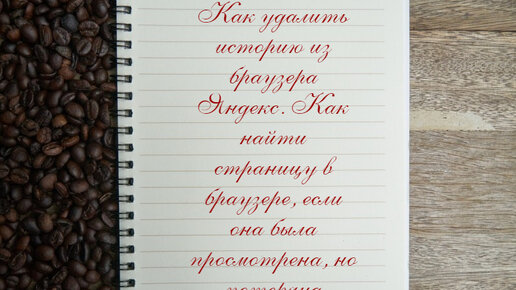 Как удалить
историю из
браузера
Яндекс. Как
найти
страницу в
браузере, если
она была
просмотрена, но
потеряна